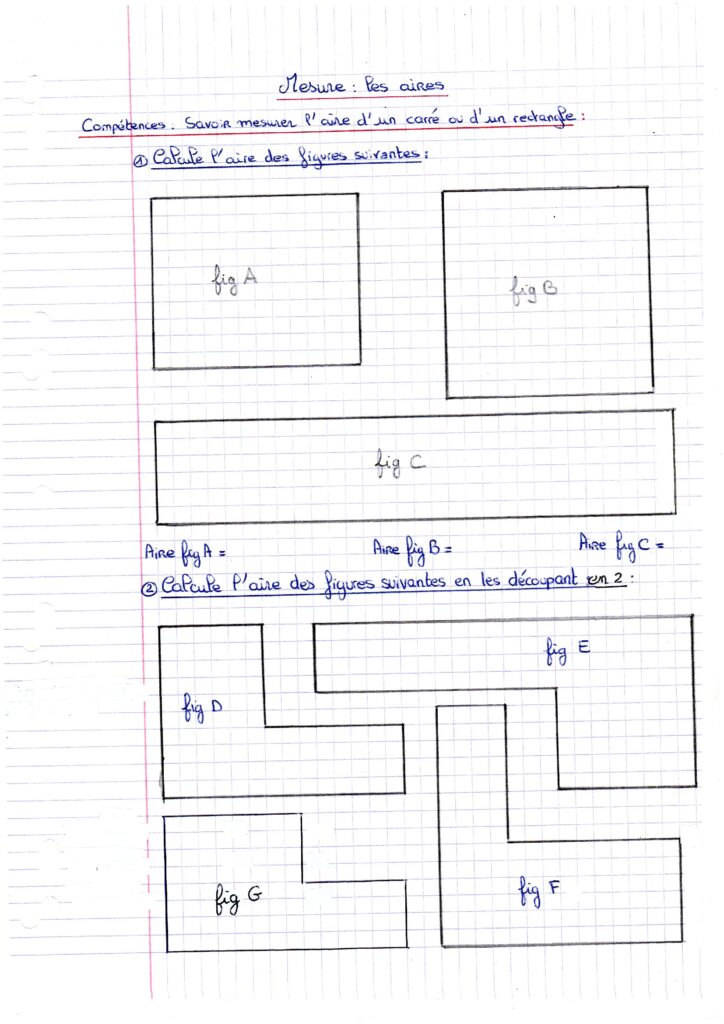 Mesure : les aires
Compétences : Savoir mesurer l'aire d'un carré ou d'un rectangle :
① Calcule l'aire des figures suivantes :
fig A
fig B
fig C
Aire fig A =
Aire fig B =
Aire fig C =
② Calcule l'aire des figures suivantes en les découpant en 2 :
fig E
fig D
fig G
fig F